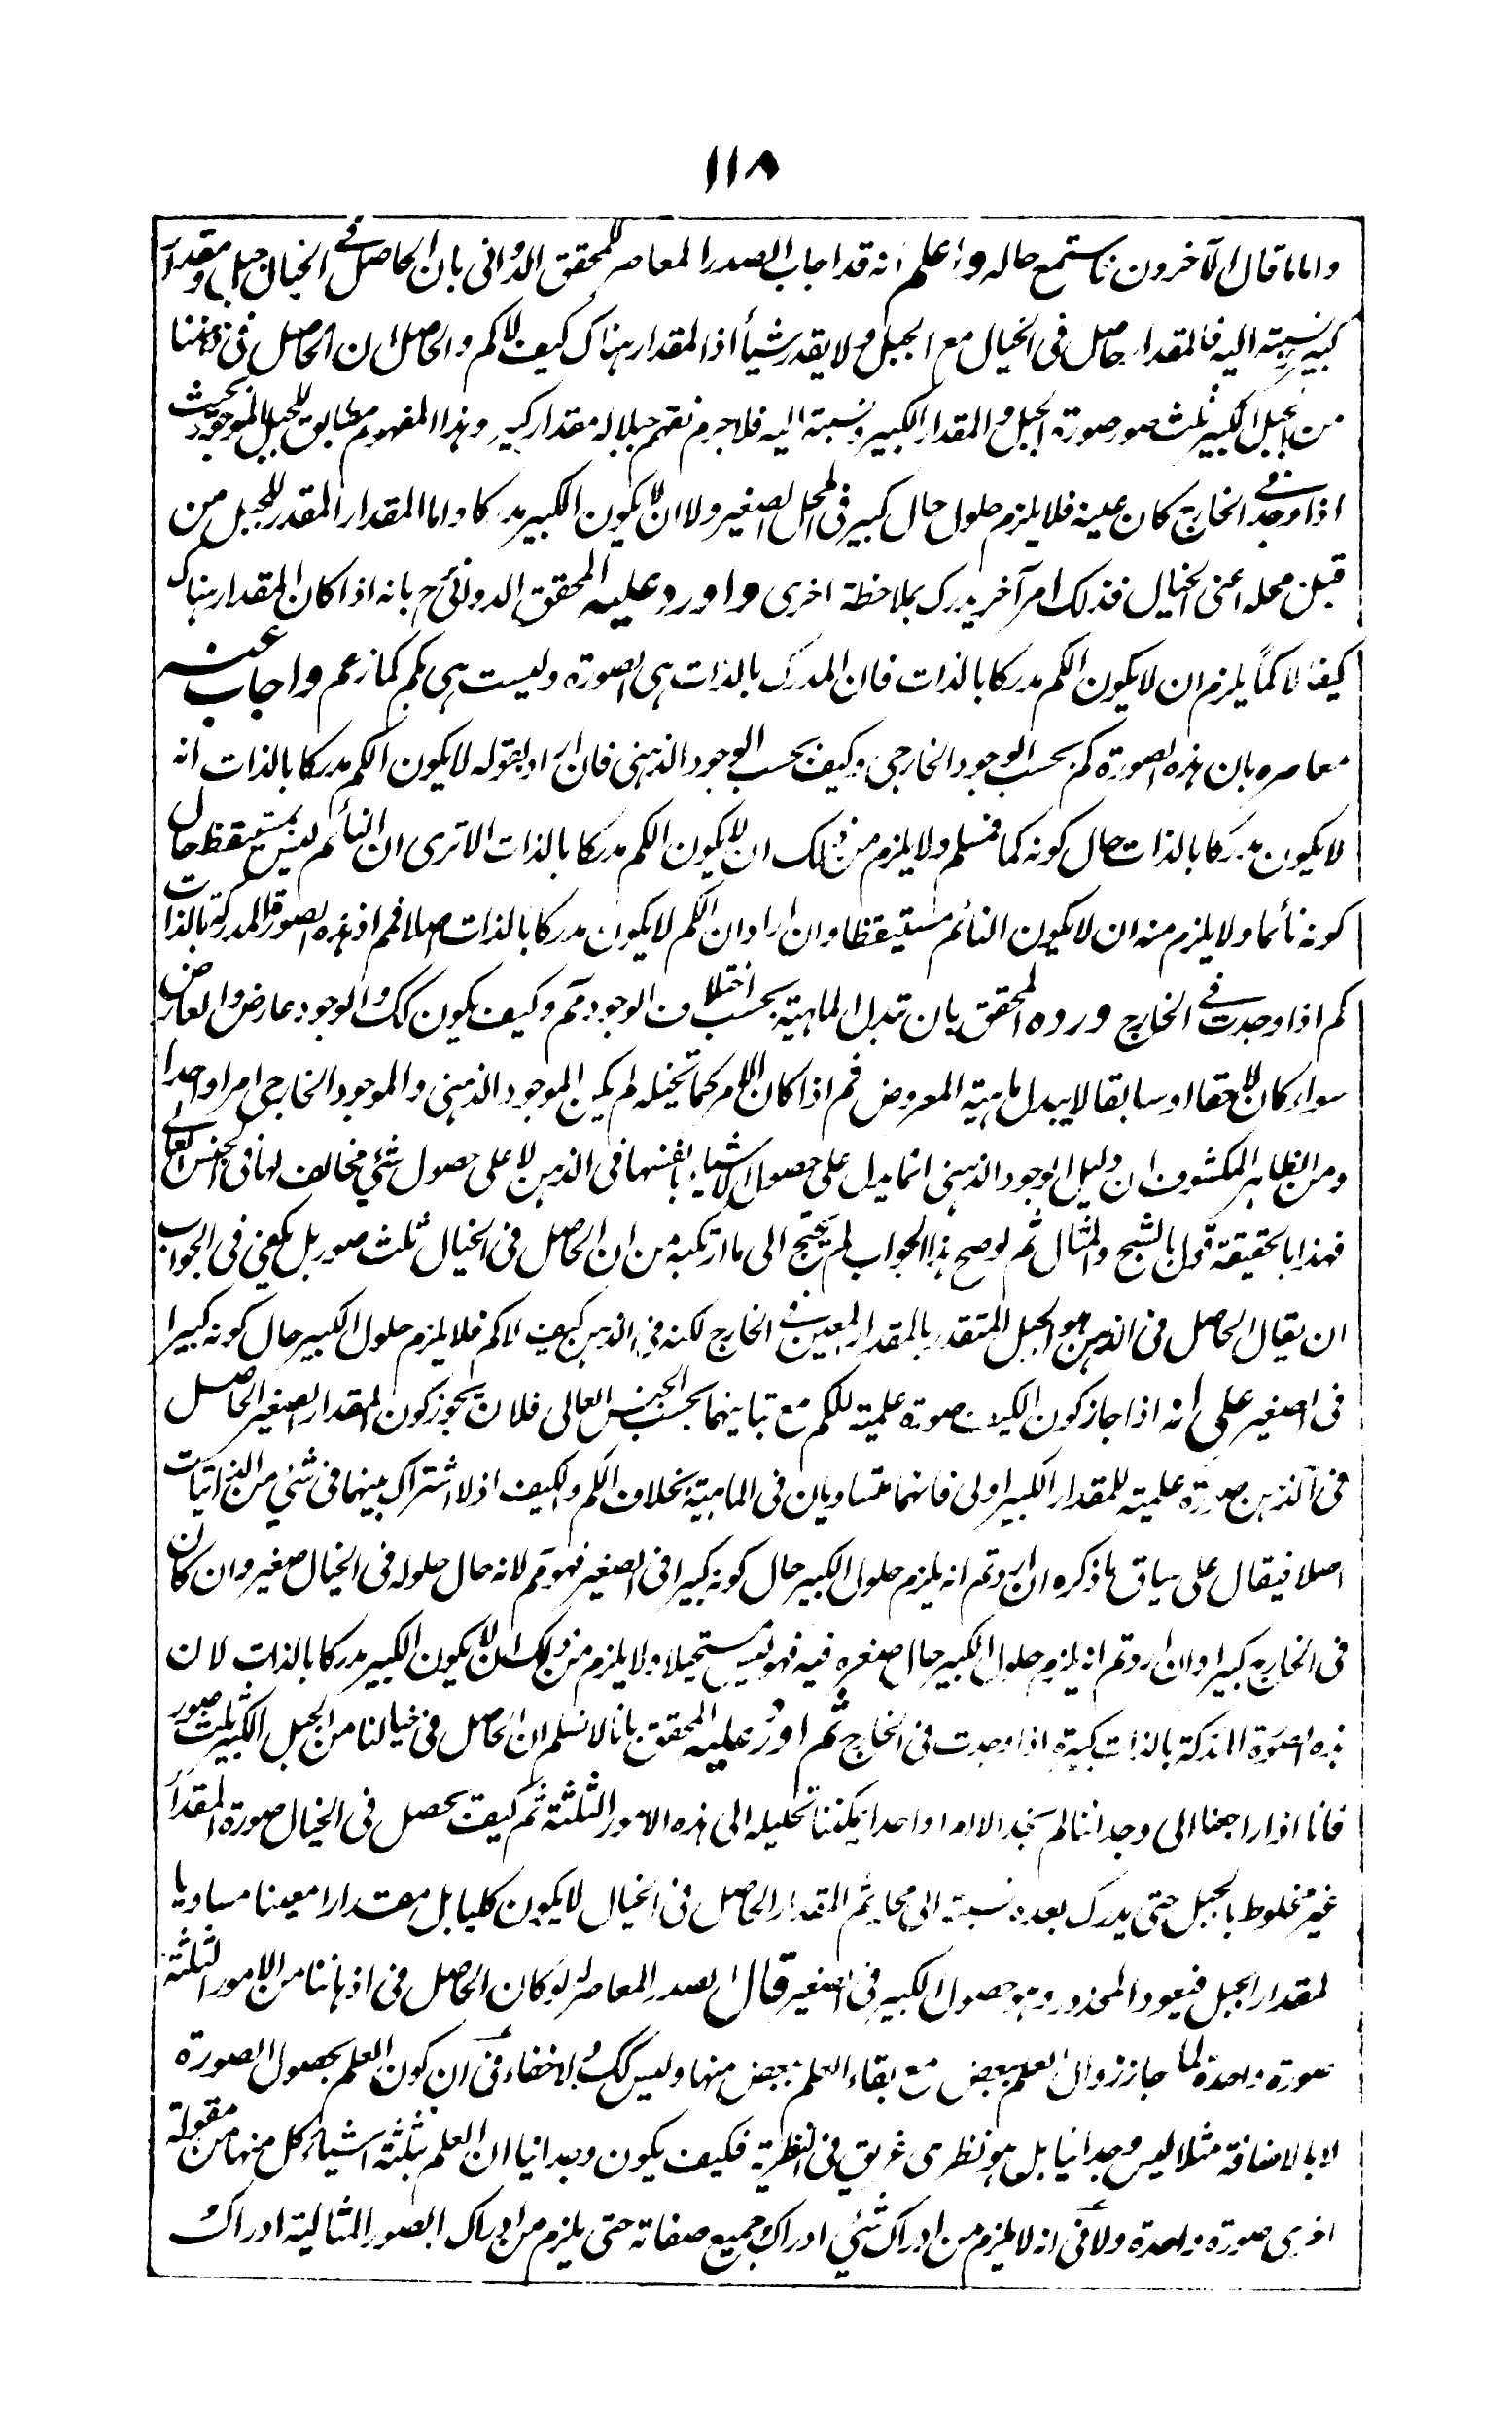 ١١٨
واما ما قال الآخرون فاستمع حاله واعلم انه قد اجاب الصدر المعاصر للمحقق الدوانى بان الحاصل فى الخيال جبل ومقدار
كبير ونسبته اليه فالمقدار حاصل فى الخيال مع الجبل ولا يقدر شيأ اذ المقدار هناك كيف لا كم والحاصل ان الحاصل فى ذهننا
من الجبل الكبير ثلث صور صورة الجبل والمقدار الكبير ونسبته اليه فلا جرم نفهم جبلا له مقدار كبير وهذا المفهوم مطابق للجبل الموجود بحيث
اذا وجد فى الخارج كان عينه فلا يلزم حلول حال كبير فى المحل الصغير ولا ان لا يكون الكبير مدركا واما المقدار المقدر للجبل من
قبل محله اعنى الخيال فذلك امر آخر يدرك بملاحظة اخرى واورد عليه المحقق الدوانى رح بانه اذا كان المقدار هناك
كيفا لا كماً يلزم ان لا يكون الكم مدركا بالذات فان المدرك بالذات هى الصورة وليست هى بكم كما زعم واجاب عنه
معاصره بان هذه الصورة كم بحسب الوجود الخارجى وكيف بحسب الوجود الذهنى فان اراد بقوله لا يكون الكم مدركا بالذات انه
لا يكون مدركا بالذات حال كونه كما فمسلم ولا يلزم من ذلك ان لا يكون الكم مدركا بالذات الا ترى ان النائم ليس بمستيقظ حال
كونه نائما ولا يلزم منه ان لا يكون النائم مستيقظا وان اراد ان الكم لا يكون مدركا بالذات اصلا فمم اذ هذه الصورة المدركة بالذات
كم اذا وجدت فى الخارج ورده المحقق بان تبدل الماهية بحسب اختلاف الوجود مم وكيف يكون كك والوجود عارض والعارض
سواء كان لاحقا او سابقا لا يبدل ماهية المعروض ثم اذا كان الامر كما تخيله لم يكن الموجود الذهنى والموجود الخارجى امرا واحدا
ومن الظاهر المكشوف ان دليل الوجود الذهنى انما يدل على حصول الاشياء بانفسها فى الذهن لا على حصول شئ مخالف لها فى الجنس العالى
فهذا بالحقيقة قول بالشبح والمثال ثم لو صح هذا الجواب لم يحتج الى ما ارتكبه من ان الحاصل فى الخيال ثلث صور بل يكفى فى الجواب
ان يقال الحاصل فى الذهن هو الجبل المتقدر بالمقدار المعين فى الخارج لكنه فى الذهن كيف لا كم فلا يلزم حلول الكبير حال كونه كبيرا
فى الصغير على انه اذا جاز كون الكيف صورة علمية للكم مع تباينهما بحسب الجنس العالى فلان يجوز كون المقدار الصغير الحاصل
فى الذهن صورة علمية للمقدار الكبير اولى فانهما متساويان فى الماهية بخلاف الكم والكيف اذ لا اشتراك بينهما فى شئ من الذاتيات
اصلا فيقال على سياق ما ذكره ان اردتم انه يلزم حلول الكبير حال كونه كبيرا فى الصغير فهو مم لانه حال حلوله فى الخيال صغير وان كان
فى الخارج كبيرا وان اردتم انه يلزم حلول الكبير حال صغره فيه فهو ليس مستحيلا ولا يلزم من ذلك ان لا يكون الكبير مدركا بالذات لان
هذه الصورة المدركة بالذات كبيرة اذا وجدت فى الخارج ثم اورد عليه المحقق بانا لا نسلم ان الحاصل فى خيالنا من الجبل الكبير ثلث صور
فانا اذا راجعنا الى وجداننا لم نجد الا امرا واحدا يمكننا تحليله الى هذه الامور الثلثة ثم كيف يحصل فى الخيال صورة المقدار
غير مخلوط بالجبل حتى يدرك بعده نسبته الى محله ثم المقدار الحاصل فى الخيال لا يكون كليا بل مقدارا معينا مساويا
لمقدار الجبل فيعود المحذور وهو حصول الكبير فى الصغير قال الصدر المعاصر له لو كان الحاصل فى اذهاننا من الامور الثلثة
صورة واحدة لما جاز زوال العلم ببعض مع بقاء العلم ببعض منها وليس كك ولا خفاء فى ان كون العلم بحصول الصورة
لا بالاضافة مثلا ليس وجدانيا بل هو نظرى غريق فى النظرية فكيف يكون وجدانيا ان العلم بثلثة اشياء كل منها من مقولة
اخرى صورة واحدة ولا فى انه لا يلزم من ادراك شئ ادراك جميع صفاته حتى يلزم من ادراك الصور المثالية ادراك